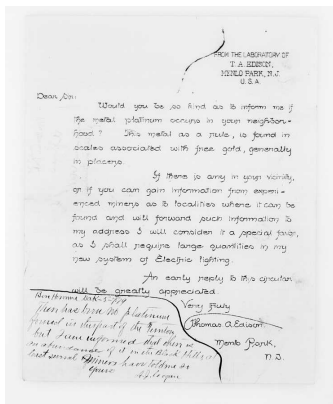 FROM THE LABORATORY OF
T. A. EDISON,
MENLO PARK, N.J.
U.S.A.
Dear Sir:
Would you be so kind as to inform me if
the metal platinum occurs in your neighbor-
hood? This metal as a rule, is found in
scales associated with free gold, generally
in placers.
If there is any in your vicinity,
or if you can gain information from experi-
enced miners as to localities where it can be
found and will forward such information to
my address I will consider it a special favor,
as I shall require large quantities in my
new system of Electric Lighting.
An early reply to this circular
will be greatly appreciated.
Very truly
Thomas A Edison.
Menlo Park,
N.J.
There has been no platinum
found in this part of the Territory
but I am informed that there is
an abundance of it in the Black Hills at
least several miners have told me so
Yours